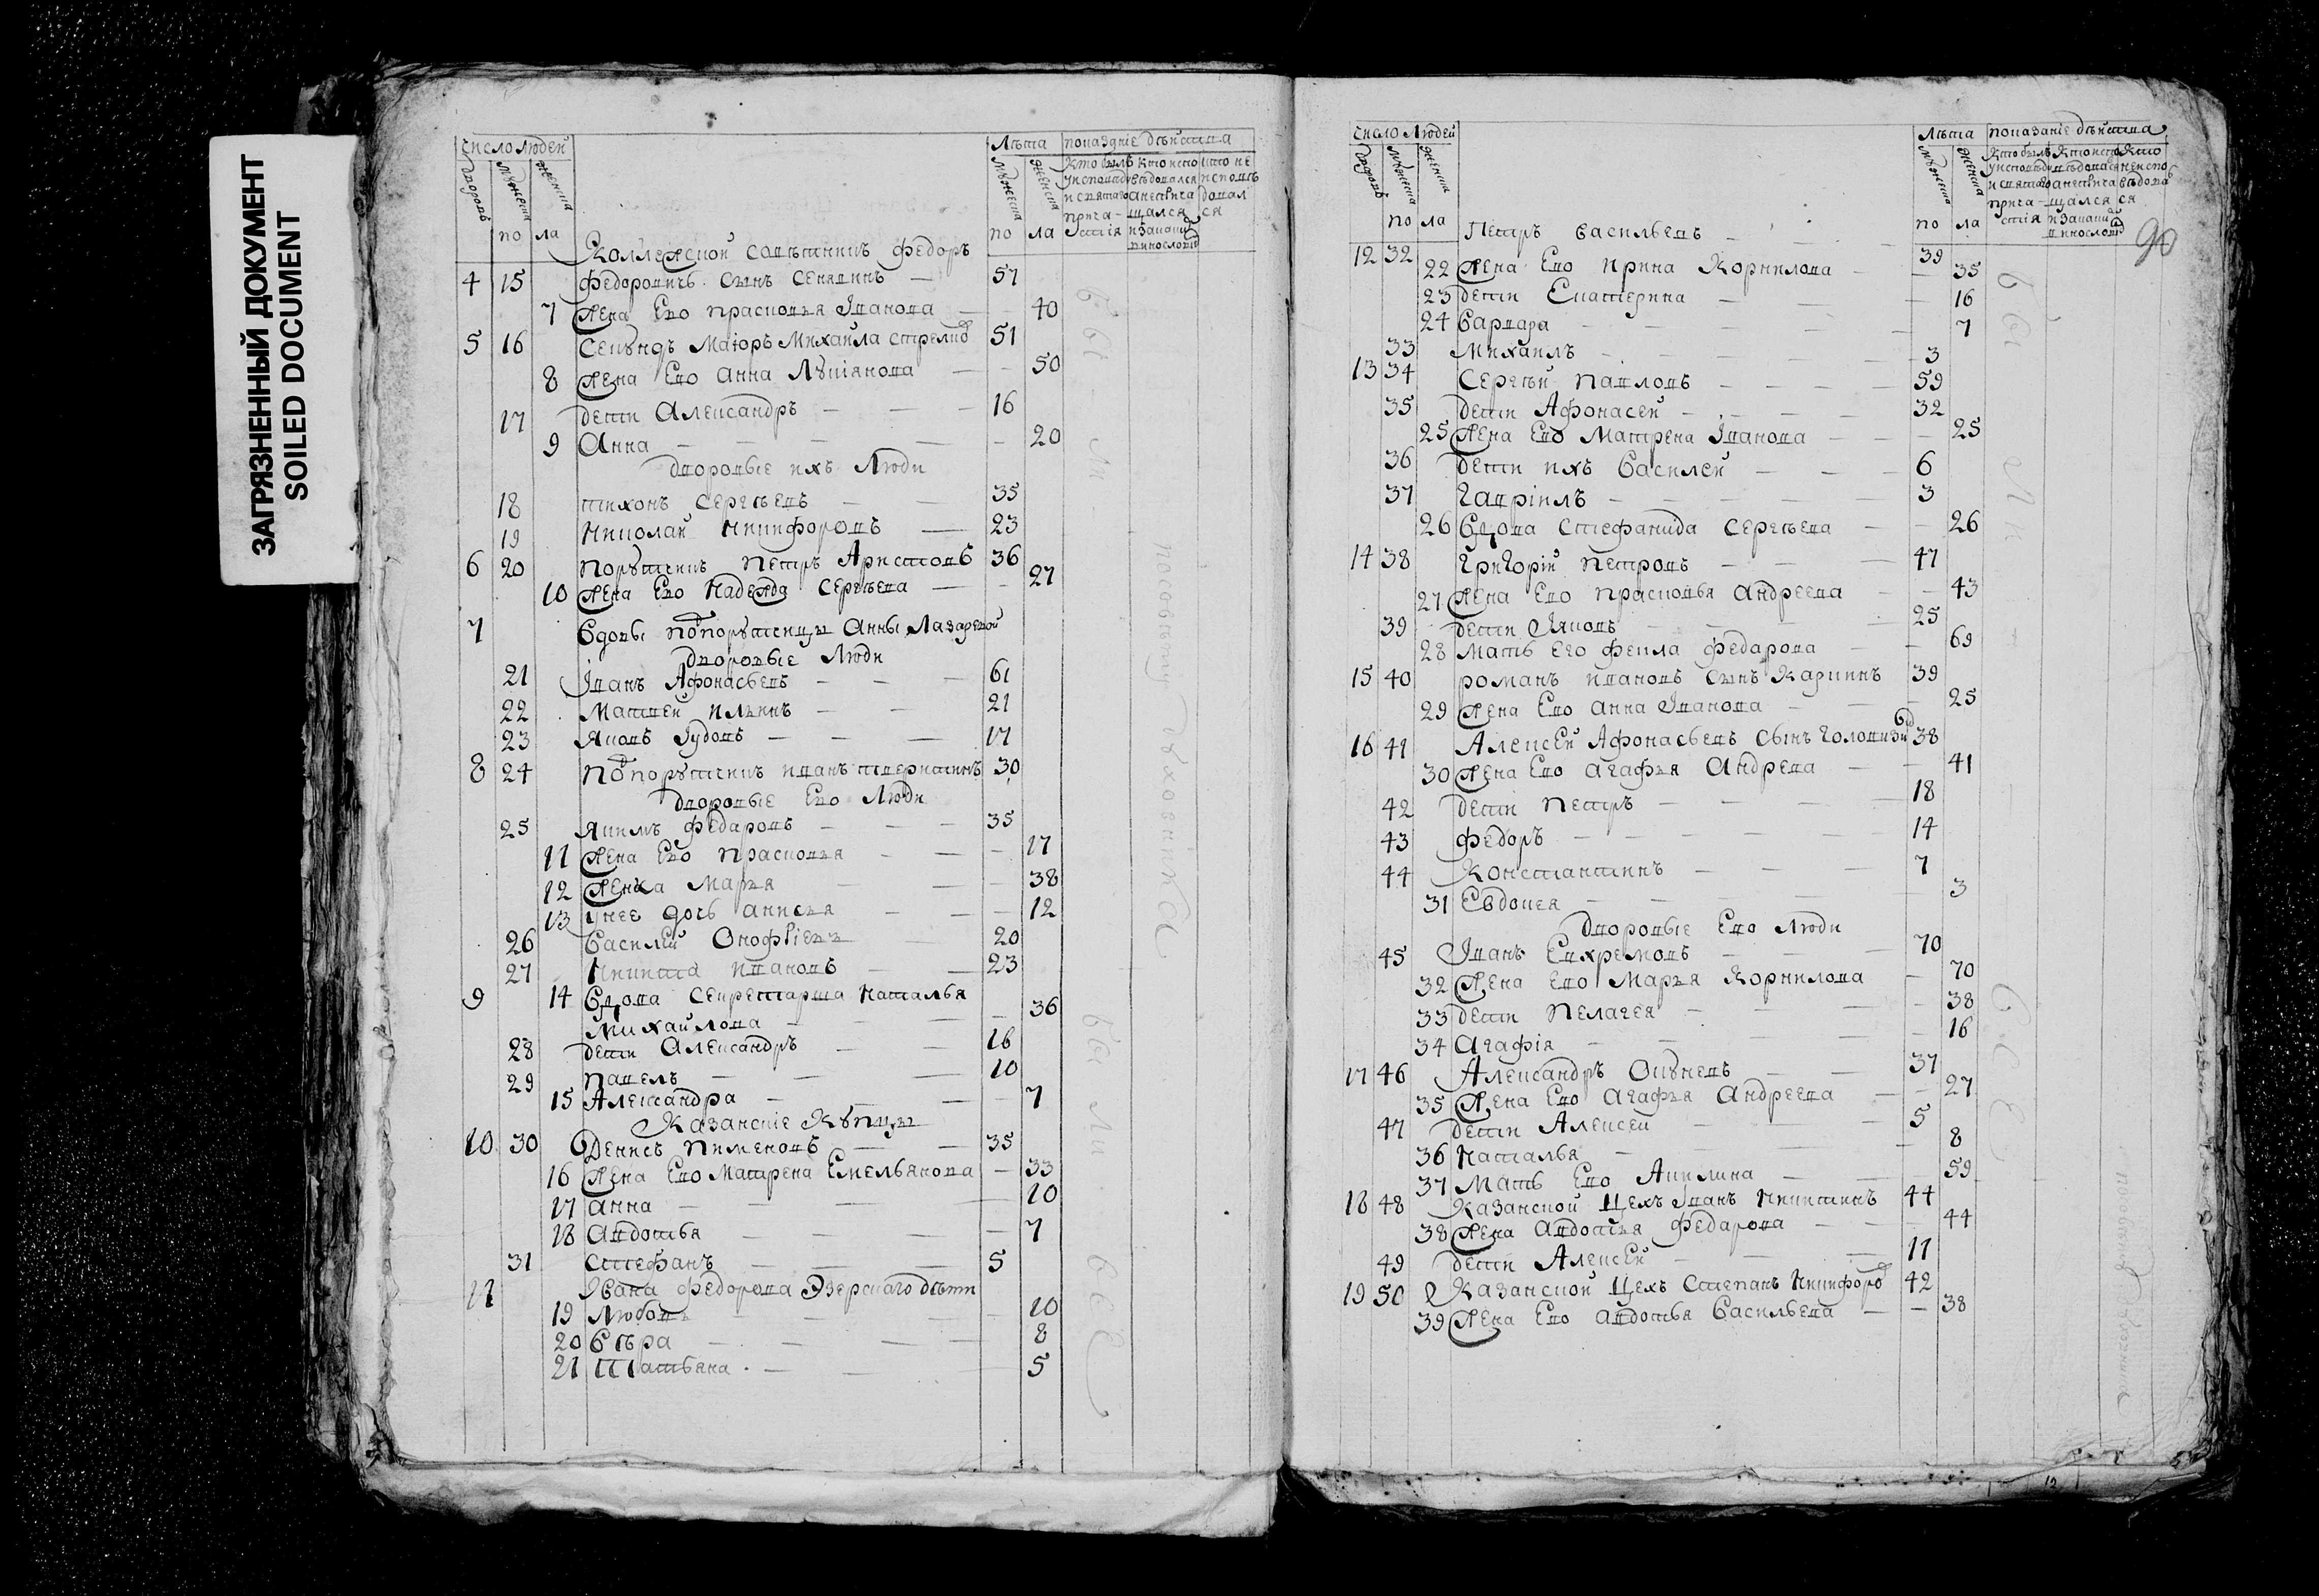 ЗАГРЯЗНЕННЫЙ ДОКУМЕНТ
SOILED DOCUMENT
число людей
Лѣта
показаніе дѣйства
дворовъ
мужеска
женска
мужеска
женска
по ла
по ла
Коллежской совѣтникъ федоръ
4 15 федоровичь сынъ Сенявинъ — 57
7 жена Ево прасковья Іванова — 40
5 16 Секундъ Маіоръ Михайла стрелков 51
8 жена Ево Анна Лукіянова — 50
17 дети Александръ — 16
9 Анна — 20
дворовые ихъ Люди
18 тихонъ Сергѣевъ — 35
19 Николай Никифоровъ — 23
6 20 порутчикъ петръ Аристовъ 36
10 жена Ево Надежда Сергѣева — 27
7 Вдовы подпорутчицы Анны Лазаревой
дворовые Люди
21 Іванъ Афонасьевъ — 61
22 Матвей Ильинъ — 21
23 Яковъ Іудовъ — 17
8 24 подпорутчикъ иванъ тверитинъ 30
дворовые Ево Люди
25 Якимъ федаровъ — 35
11 жена Ево прасковья — 17
12 женка Марья — 38
13 унее дочь анисья — 12
26 Василей Онофріевъ 20
27 Никита ивановъ — 23
9 14 Вдова Секретарша Наталья
Михайлова — 36
28 дети Александръ — 16
29 павелъ — 10
15 Александра — 7
Казанскіе Купцы
10 30 Денисъ пименовъ — 35
16 жена Ево Матрена Емельянова — 33
17 анна — 10
18 Авдотья — 7
31 Стефанъ — 5
11 Ивана федорова Эзерского дѣти
19 Любовь 10
20 Вѣра — 8
21 Татьяна — 5
были
по
были
все
число людей
Лѣта
показаніе дѣйства
дворовъ
мужеска
женска
мужеска
женска
по ла
по ла
90
12 32 петръ васильевъ — 39
22 жена Ево ирина Корнилова — 35
23 дети Екатерина — 16
24 Варвара — 7
33 Михаилъ — 3
13 34 Сергѣй павловъ — 59
35 дети Афонасей — 32
25 жена Ево Матрена Іванова — 25
36 дети ихъ Василей — 6
37 Гавріилъ — 3
26 Вдова Стефанида Сергѣева — 26
14 38 григорій петровъ — 47
27 жена Ево прасковья андреева — 43
39 дети Яковъ — 25
28 мать его фекла федарова — 69
15 40 романъ ивановъ сынъ Каринъ 39
29 жена Ево анна Іванова — 25
16 41 Алексей Афонасьевъ сынъ 38
30 жена Ево агафья Андреева — 41
42 дети петръ — 18
43 федоръ — 14
44 Константинъ — 7
31 Евдокея — 3
дворовые Ево Люди
45 Іванъ Евхремовъ — 70
32 жена Ево Марья Корнилова — 70
33 дети пелагея — 38
34 Агафія — 16
17 46 Александръ Окуневъ — 37
35 жена Ево агафья Андреева — 27
47 дети Алексей — 5
36 Наталья — 8
37 Мать Ево Акилина — 59
18 48 Казанской Цехъ Іванъ Никитинъ 44
38 жена Авдотья федарова — 44
49 дети Алексей — 11
19 50 Казанской Цехъ Степанъ Никифоров 42
39 жена Ево авдотья Васильева — 38
были
все